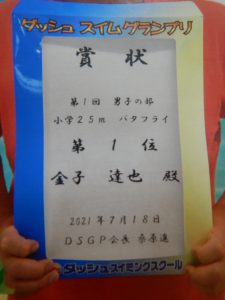 ダッシュ スイムグランプリ
賞 状
第1回 男子の部
小学25m バタフライ
第 1 位
金子 達也 殿
2021年7月18日
DSGP会長 桑原進
ダッシュスイミングスクール